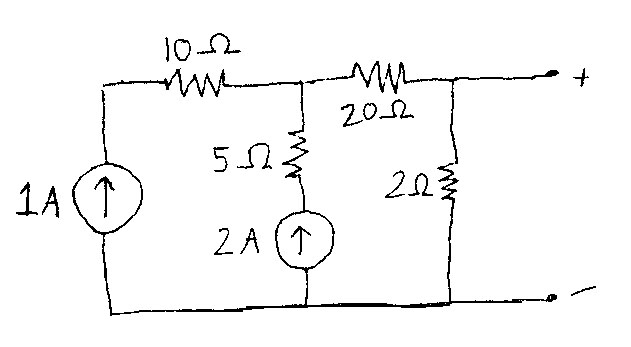 10Ω
20Ω
5Ω
2Ω
1A
2A
+
−